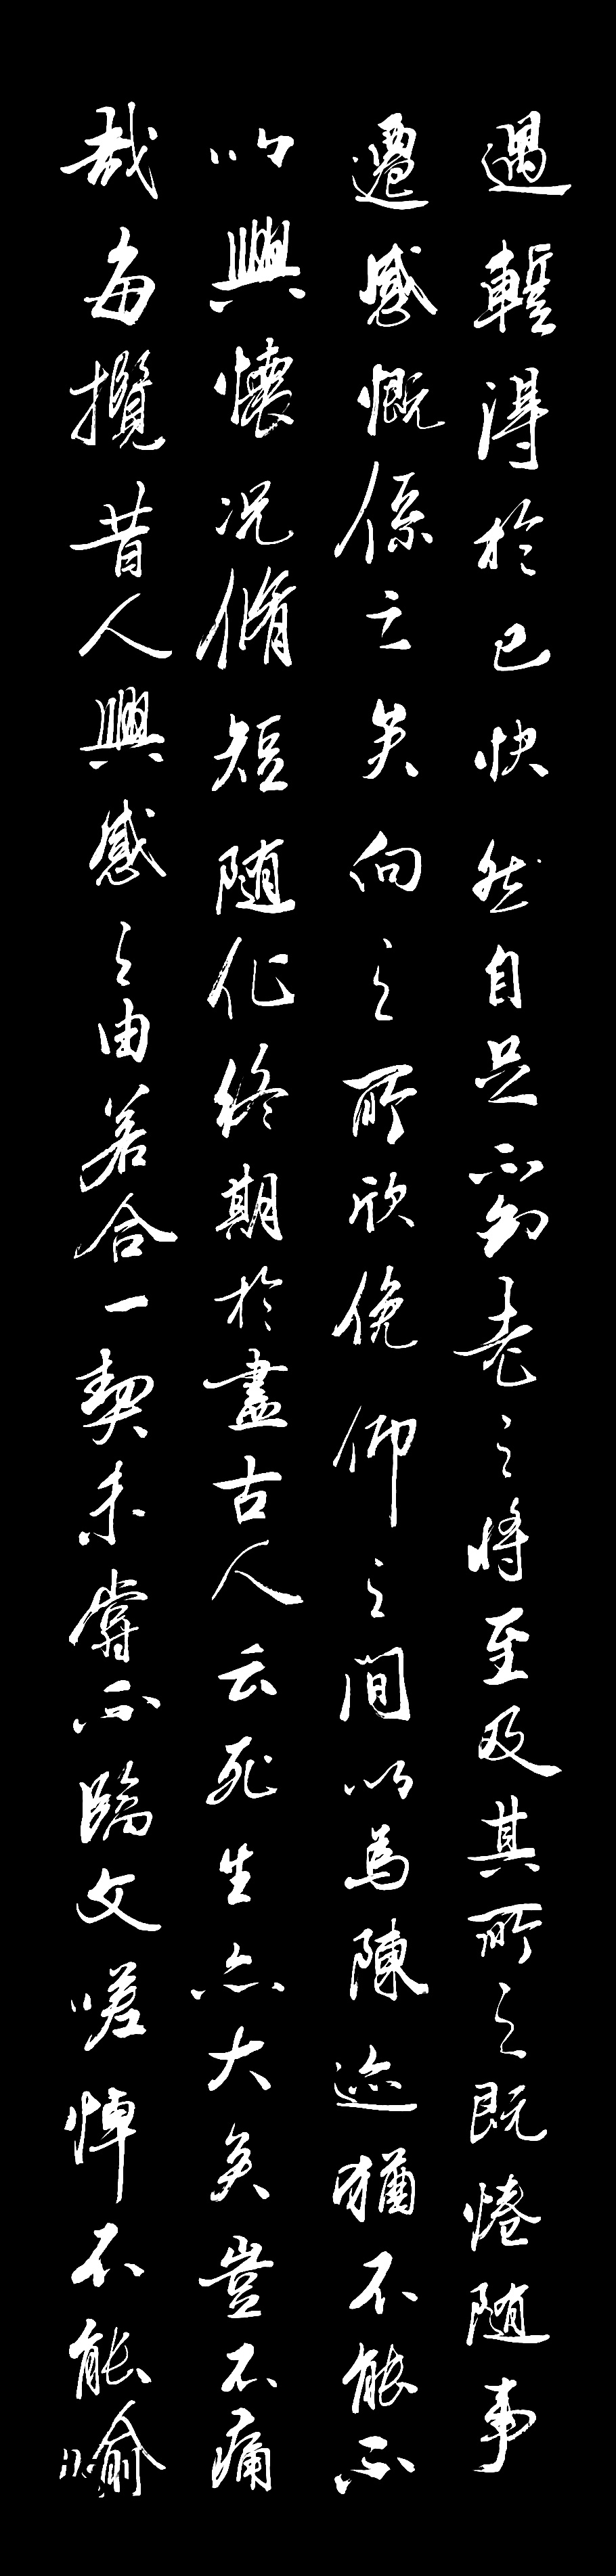 遇暫得於己快然自足不知老之將至及其所之既惓随事
遷感慨係之矣向之所欣俛仰之間以為陳迹猶不能不
以興懷况脩短随化終期於盡古人云死生亦大矣豈不痛
哉每攬昔人興感之由若合一契未嘗不臨文嗟悼不能喻